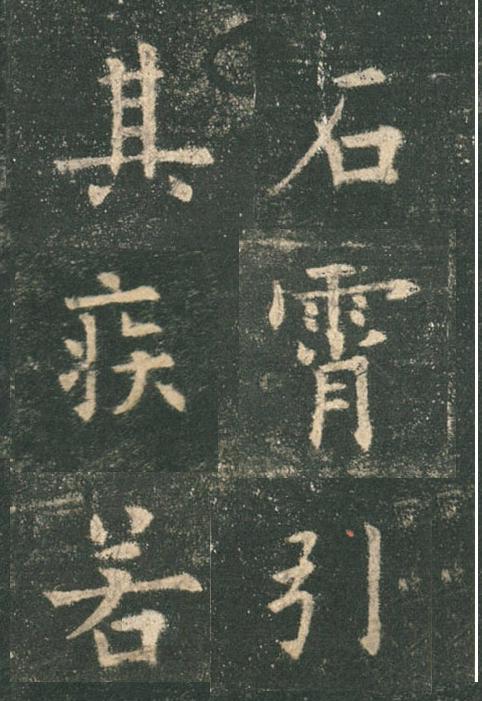 石霄引
其疾若